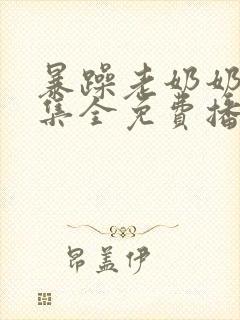 暴躁老奶奶
集全免費播
昂盖伊